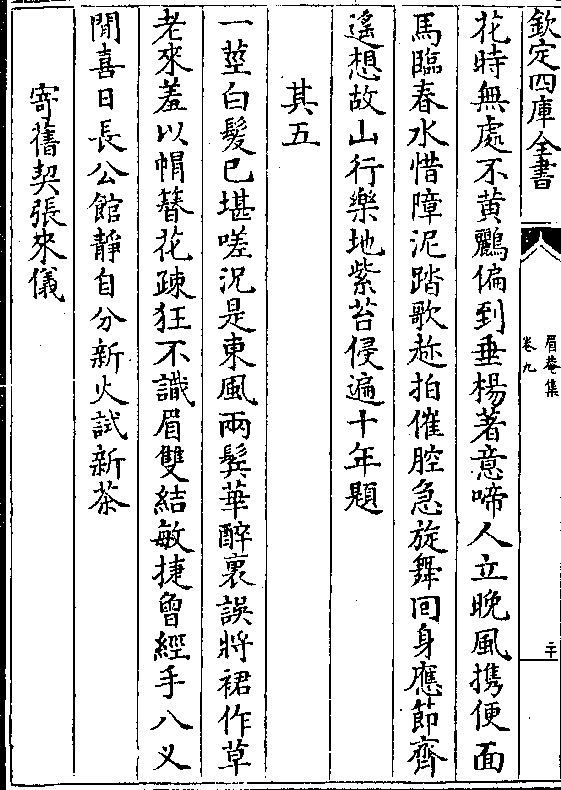 欽定四庫全書
眉菴集
卷九
二十
花時無處不黄鸝偏到垂楊著意啼人立晚風攜便面
馬臨春水惜障泥踏歌趂拍催腔急旋舞回身應節齊
遙想故山行樂地紫苔侵遍十年題
其五
一莖白髮已堪嗟況是東風兩鬂華醉裏誤將裙作草
老來羞以帽簪花疎狂不識眉雙結敏捷曾經手八义
聞喜日長公館靜自分新火試新茶
寄舊契張來儀